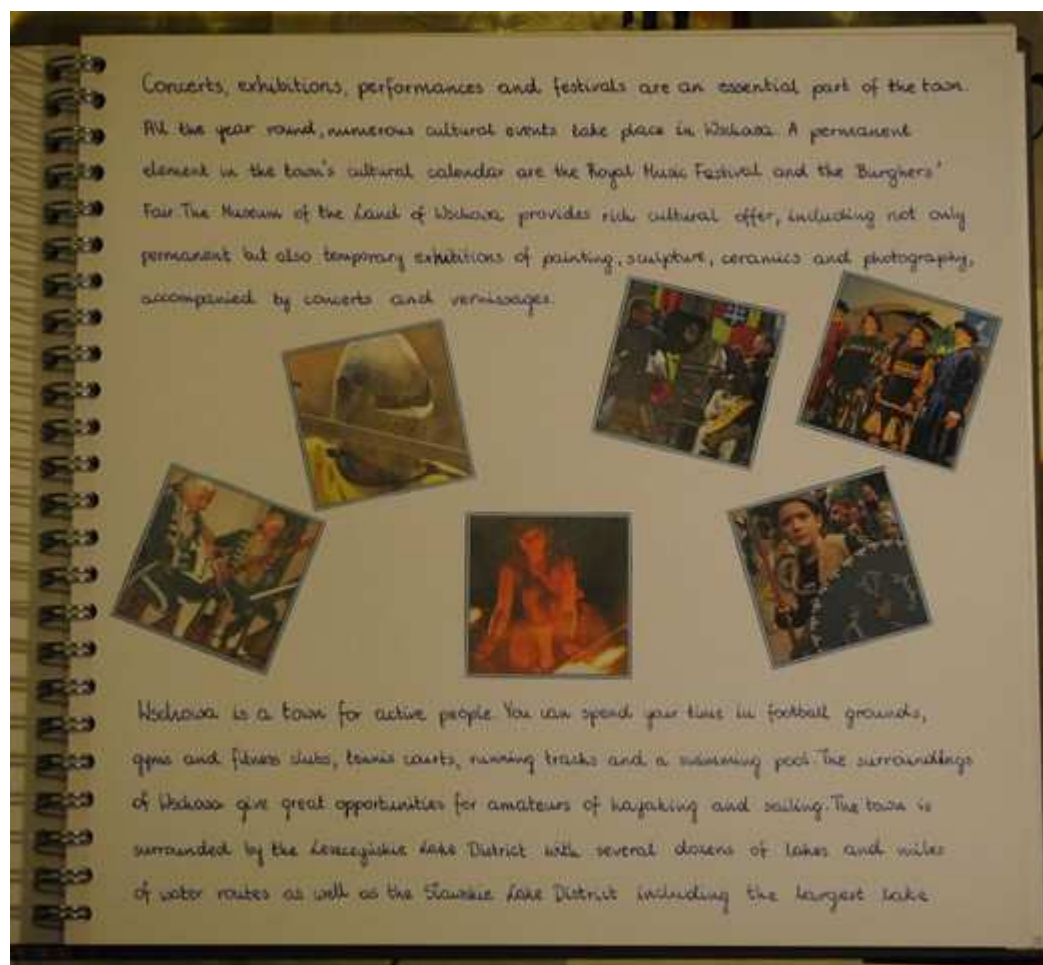 Concerts, exhibitions, performances and festivals are an essential part of the town.
All the year round, numerous cultural events take place in Wschowa. A permanent
element in the town's cultural calendar are the Royal Music Festival and the Burghers'
Fair. The Museum of the Land of Wschowa provides rich cultural offer, including not only
permanent but also temporary exhibitions of painting, sculpture, ceramics and photography,
accompanied by concerts and vernissages.
Wschowa is a town for active people. You can spend your time in football grounds,
gyms and fitness clubs, tennis courts, running tracks and a swimming pool. The surroundings
of Wschowa give great opportunities for amateurs of kayaking and sailing. The town is
surrounded by the Leszczyńskie Lake District with several dozens of lakes and miles
of water routes as well as the Sławskie Lake District including the largest lake